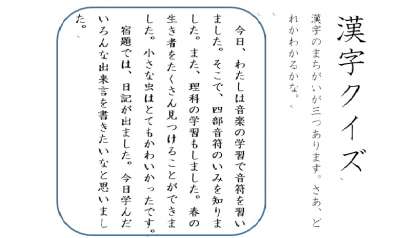 漢字クイズ
漢字のまちがいが三つあります。さあ、ど
れかわかるかな。
今日、わたしは音楽の学習で音符を習い
ました。そこで、四部音符のいみを知りま
した。また、理科の学習もしました。春の
生き者をたくさん見つけることができま
した。小さな虫はとてもかわいかったです。
宿題では、日記が出ました。今日学んだ
いろんな出来言を書きたいなと思いまし
た。